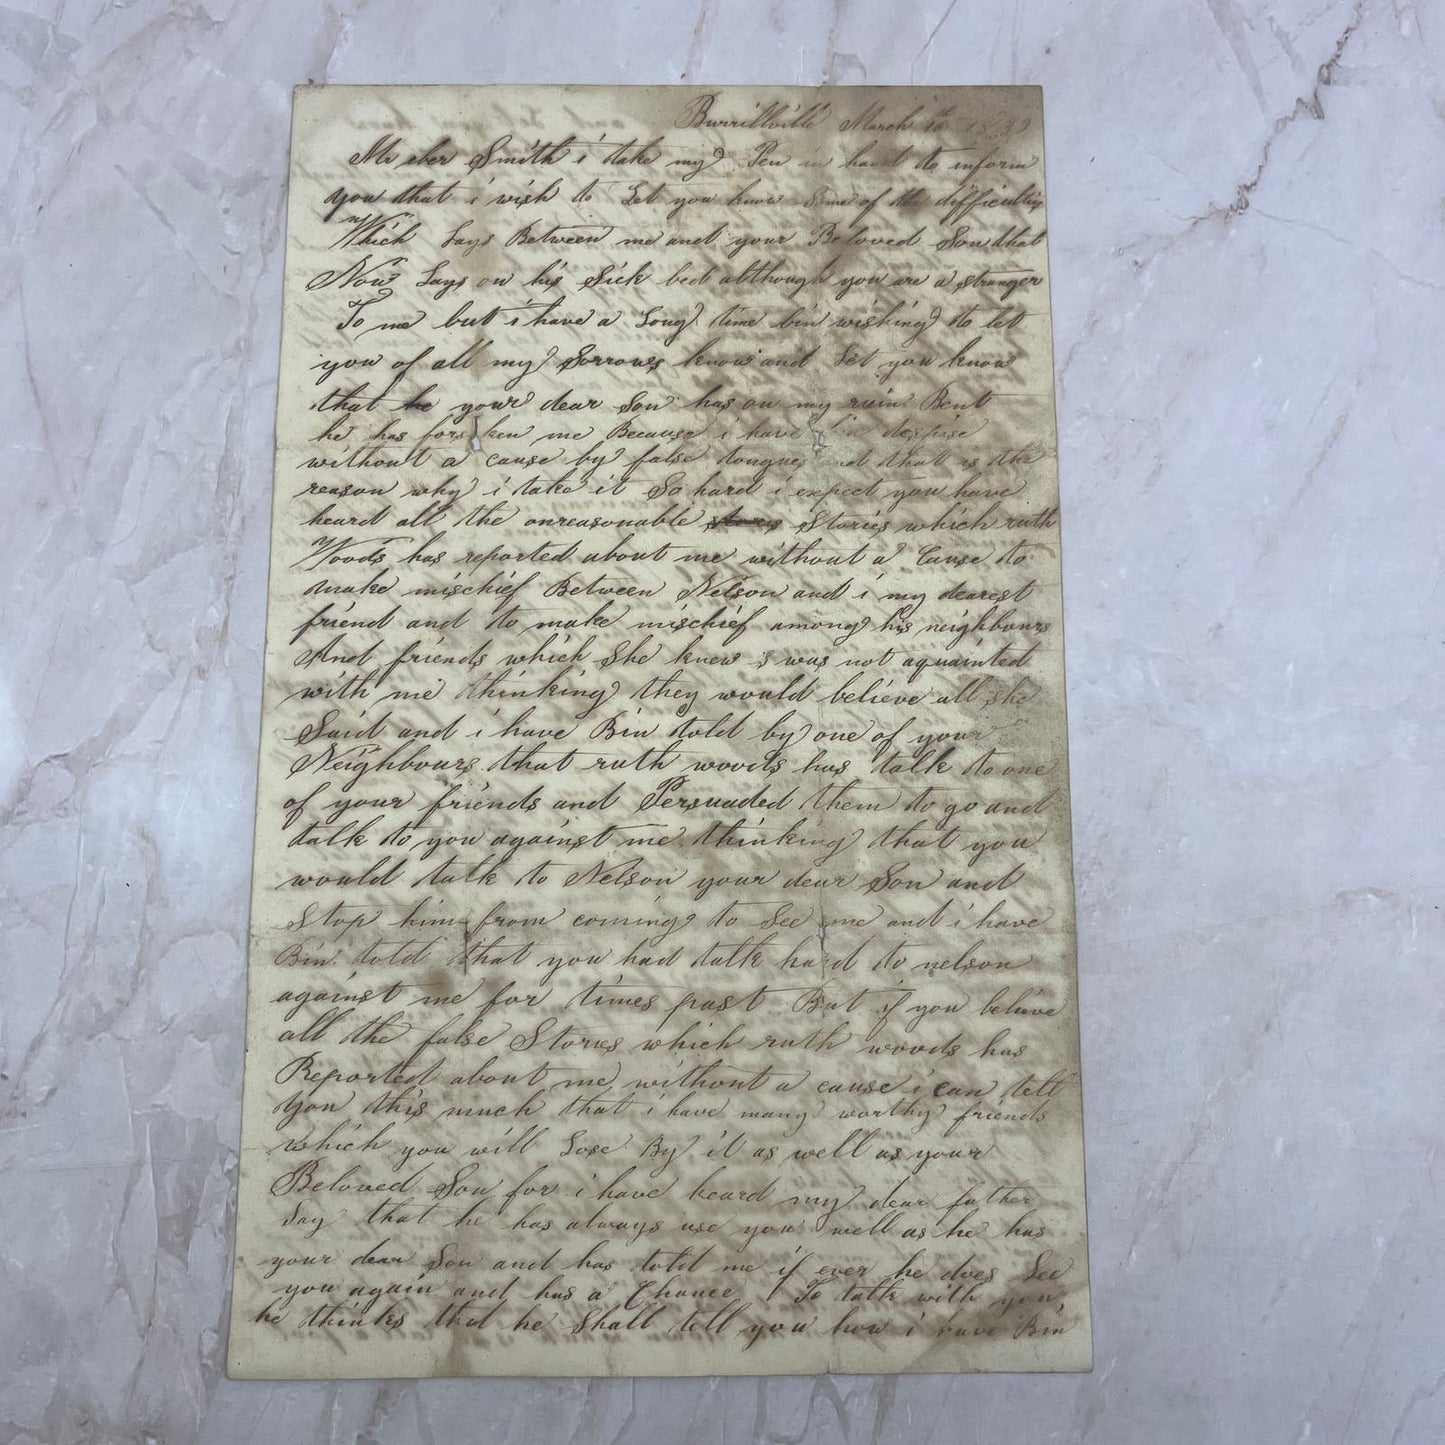 Burrillville March 16th 1839
Mr eber Smith i take my Pen in hand to inform
you that i wish to Let you know Some of the difficultis
Which Lays Between me and your Beloved Son that
Now Lays on his Sick bed although you are a stranger
To me but i have a Long time bin wishing to let
you of all my Sorrows know and Let you know
that he your dear Son has on my ruin Bent
he has forsken me Because i have bin despise
without a cause by false tongues and that is the
reason why i take it So hard i expect you have
heard all the onreasonable stores Stories which ruth
Woods has reported about me without a Cause to
make mischief Between Nelson and i my dearest
friend and to make mischief among his neighbours
And friends which She knew i was not aquainted
with me thinking they would believe all she
Said and i have Bin told by one of your
Neighbours that ruth woods has talk to one
of your friends and Persuaded them to go and
talk to you against me thinking that you
would talk to Nelson your dear Son and
Stop him from coming to See me and i have
Bin told that you had talk hard to nelson
against me for times past But if you believe
all the false Stories which ruth woods has
Reported about me without a cause i can tell
you this much that i have many worthy friends
which you will Lose By it as well as your
Beloved Son for i have heard my dear father
Say that he has always use you well as he has
your dear Son and has told me if ever he does See
you again and has a Chance To talk with you
he thinks that he Shall tell you how i have Bin